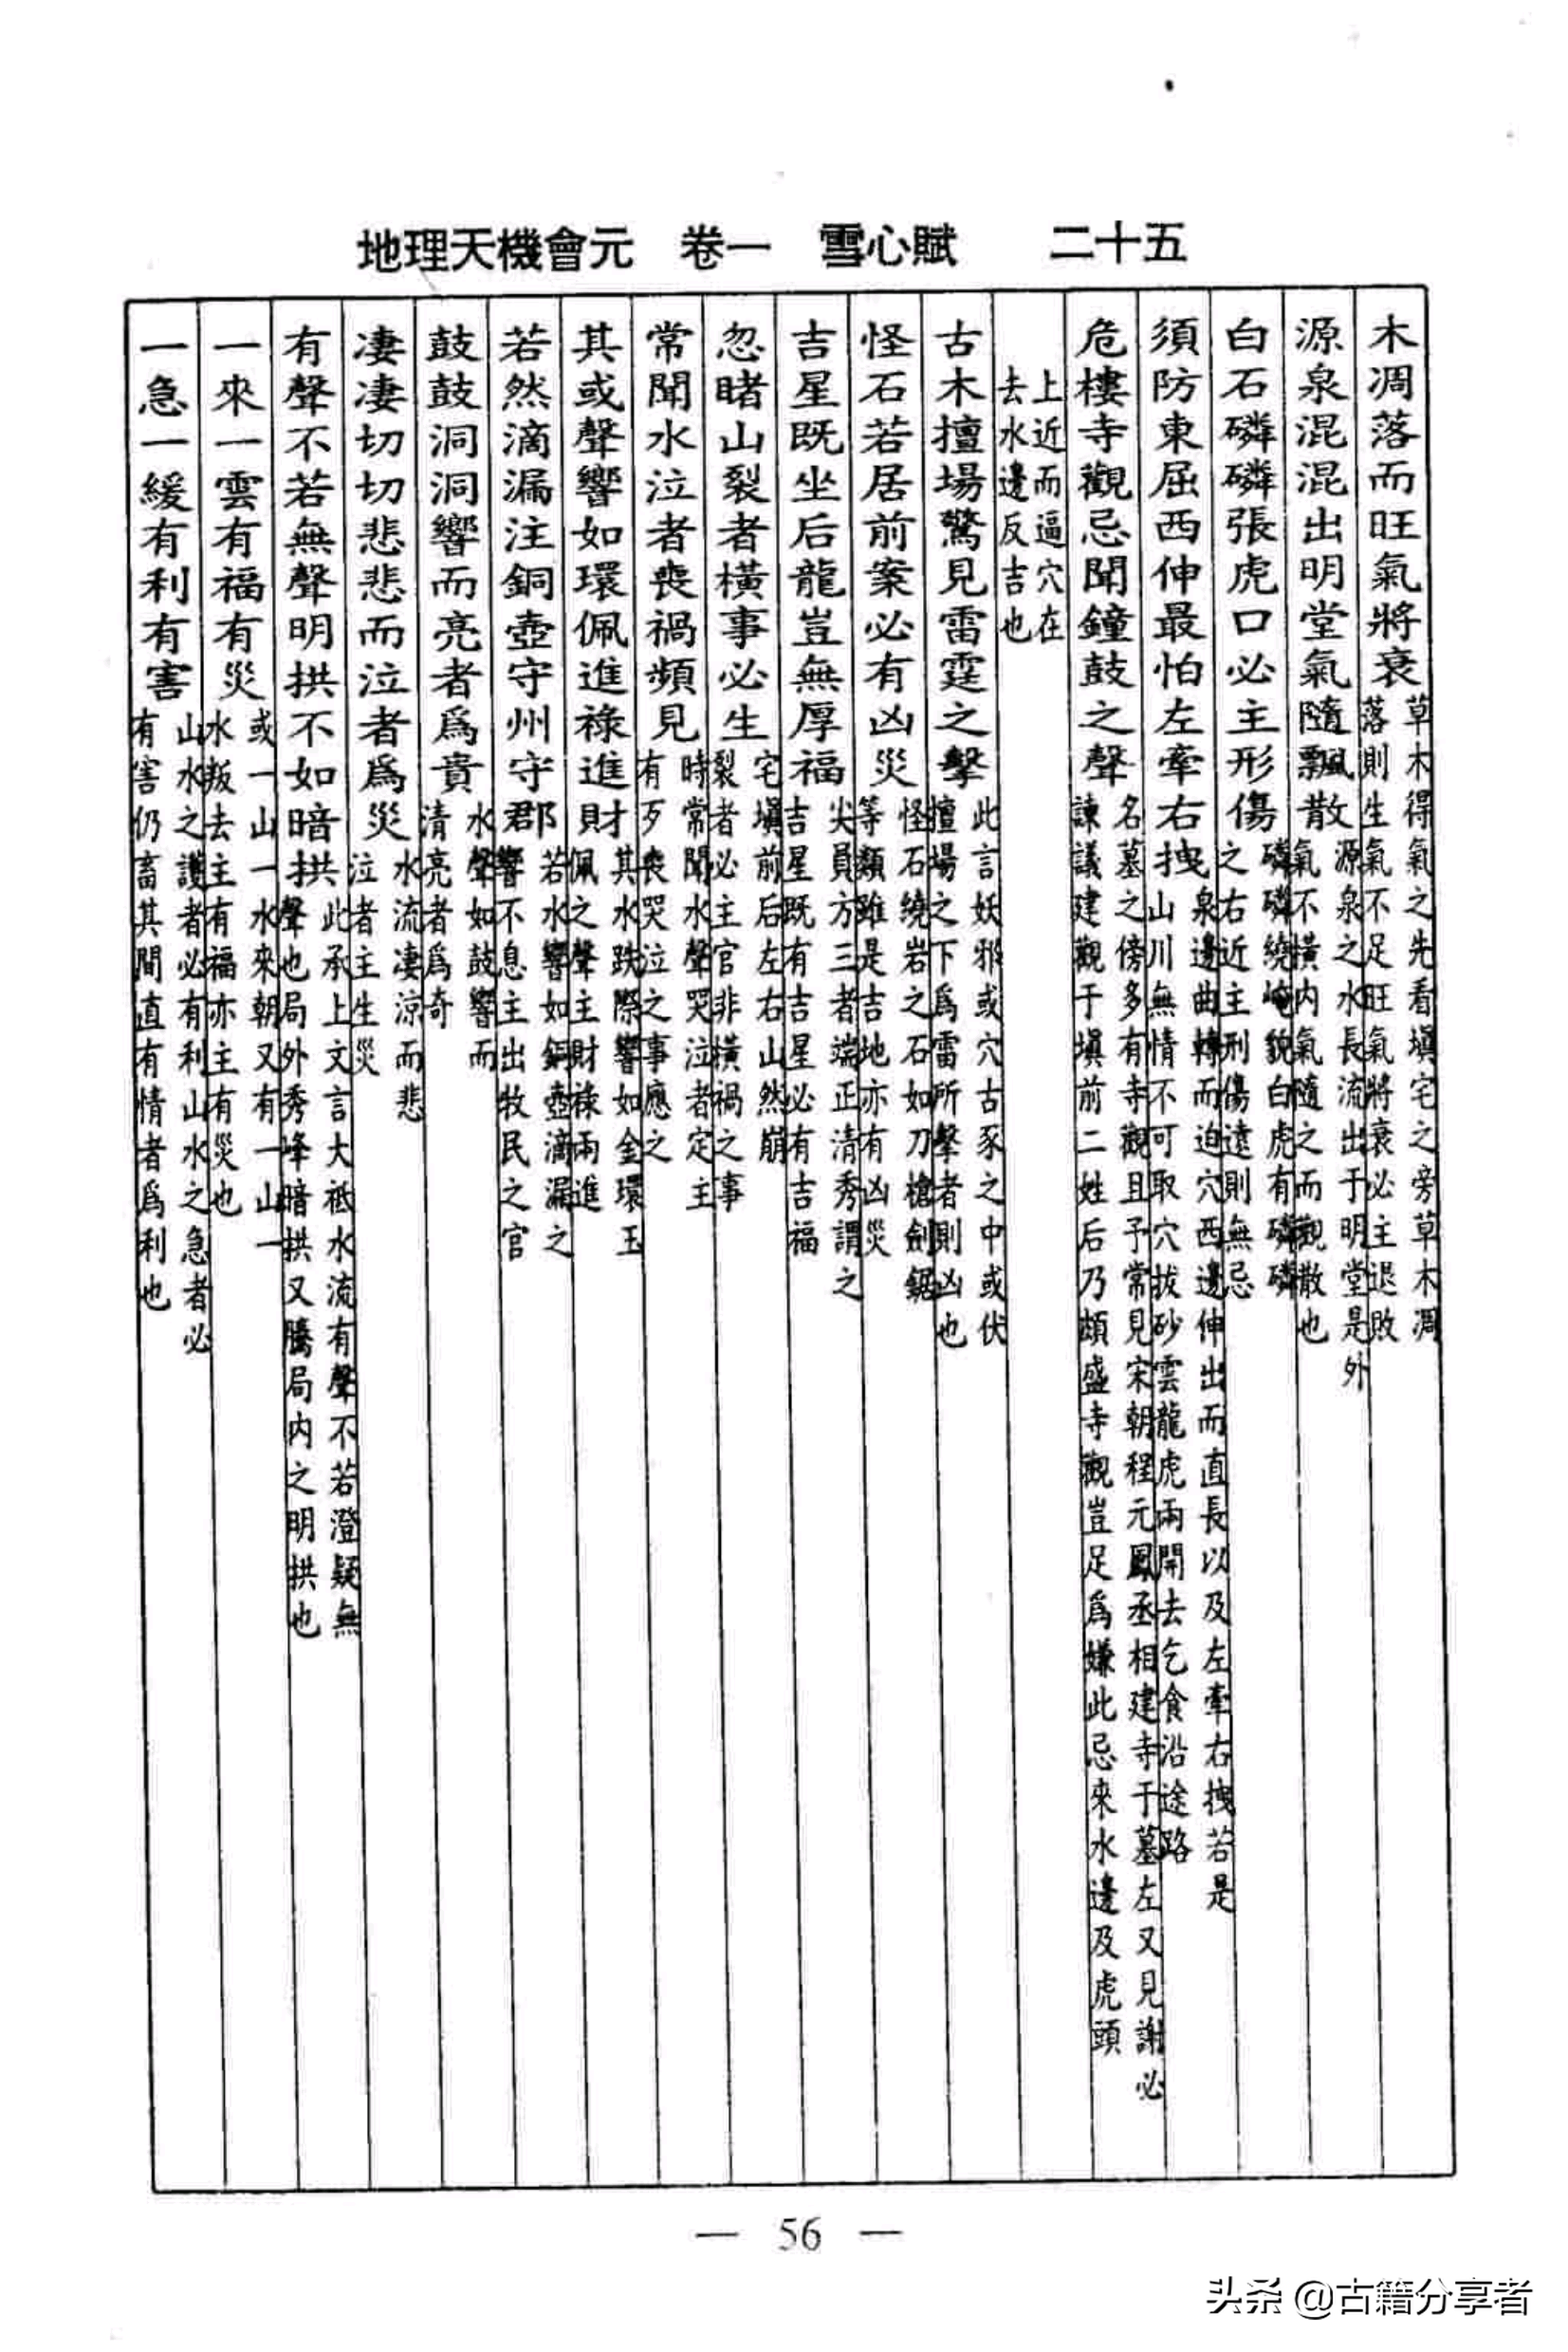 地理天機會元 卷一 雪心賦 二十五
木凋落而旺氣將衰
草木得氣之先看塡宅之旁草木凋
落則生氣不足旺氣將衰必主退敗
源泉混混出明堂氣隨飄散
源泉之水長流出于明堂是外
氣不橫內氣隨之而觀散也
白石磷磷張虎口必主形傷
磷磷繞崦貌白虎有磷磷
之右近主刑傷遠則無忌
須防東屈西伸最怕左牽右拽
泉邊曲轉而迫穴西邊伸出而直長以及左牽右拽若是
山川無情不可取穴拔砂雲龍虎兩開去乞食沿途路
危樓寺觀忌聞鐘鼓之聲
名墓之傍多有寺觀且予常見宋朝程元鳳丞相建寺于墓左又見謝必
諫議建觀于塡前二姓后乃頗盛寺觀豈足爲嫌此忌來水邊及虎頭
上近而逼穴在
去水邊反吉也
古木擅場驚見雷霆之擊
此言妖邪或穴古豕之中或伏
擅場之下爲雷所擊者則凶也
怪石若居前案必有凶災
怪石繞岩之石如刀槍劍鋸
等類雖是吉地亦有凶災
吉星既坐后龍豈無厚福
尖員方三者端正清秀謂之
吉星既有吉星必有吉福
忽睹山裂者橫事必生
宅塡前后左右山然崩
裂者必主官非橫禍之事
常聞水泣者喪禍頻見
時常聞水聲哭泣者定主
有歹喪哭泣之事應之
其或聲響如環佩進祿進財
其水跌際響如金環玉
佩之聲主財祿兩進
若然滴漏注銅壺守州守郡
若水響如銅壺滴漏之
響不息主出牧民之官
鼓鼓洞洞響而亮者爲貴
水聲如鼓響而
清亮者爲奇
凄凄切切悲悲而泣者爲災
水流凄涼而悲
泣者主生災
有聲不若無聲明拱不如暗拱
此承上文言大祗水流有聲不若澄疑無
聲也局外秀峰暗拱又騰局內之明拱也
一來一雲有福有災
或一山一水來朝又有一山一
水叛去主有福亦主有災也
一急一緩有利有害
山水之護者必有利山水之急者必
有害仍畜其間直有情者爲利也
— 56 —
头条 @古籍分享者